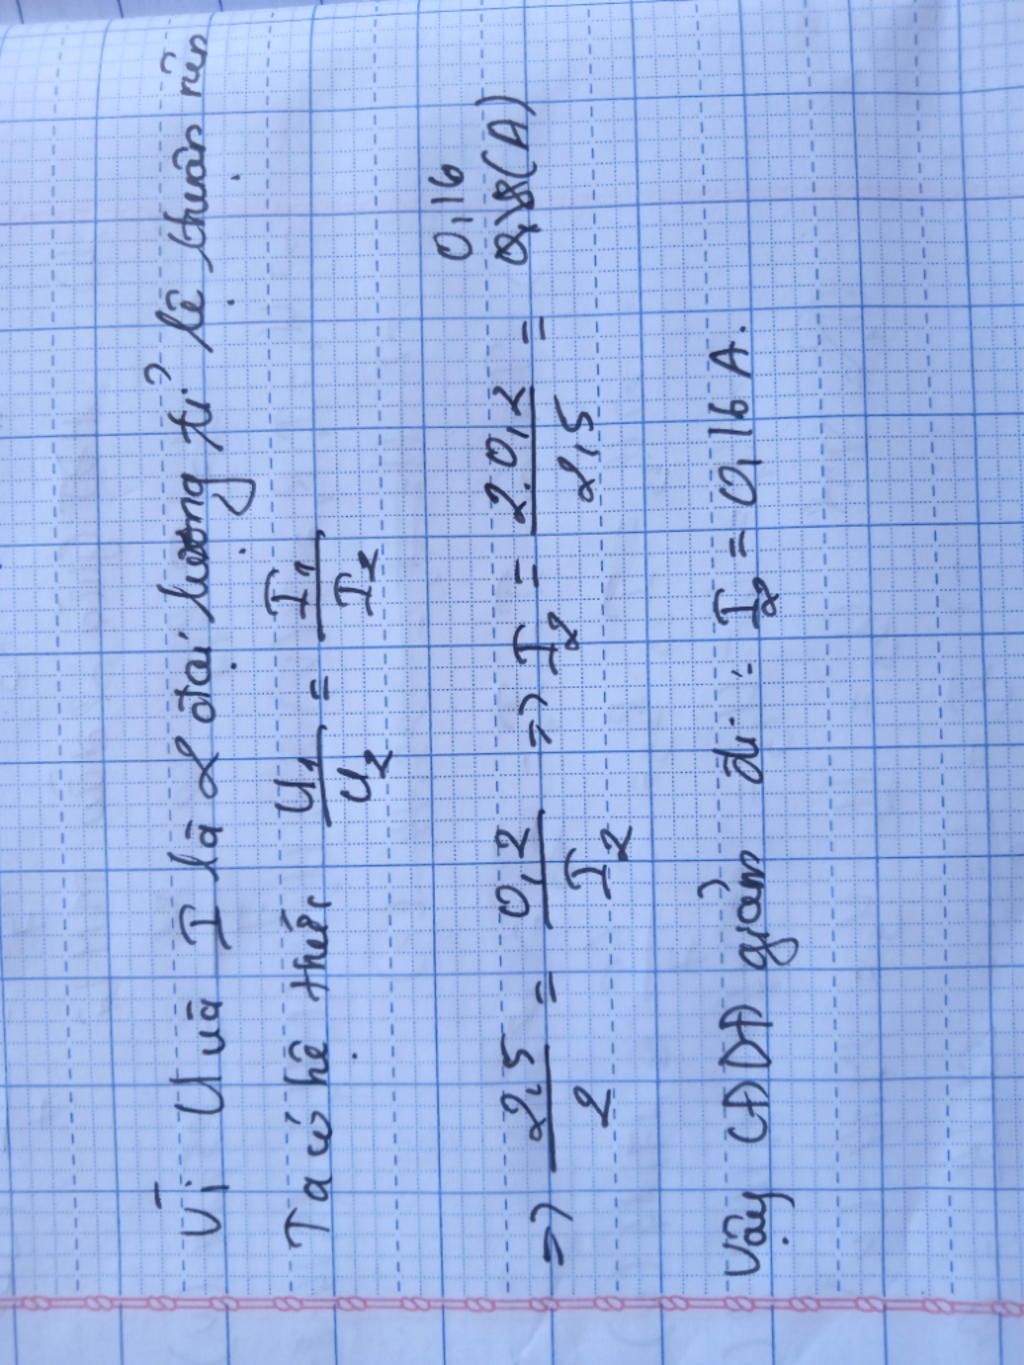 Vì U và I là 2 đại lượng tỉ lệ thuận nên
Ta có hệ thức U1/U2 = I1/I2
0,16
=> 2,5/2 = 0,2/I2 => I2 = 2.0,2/2,5 = 0,18(A)
Vậy CĐDĐ giảm đi : I2 = 0,16 A.